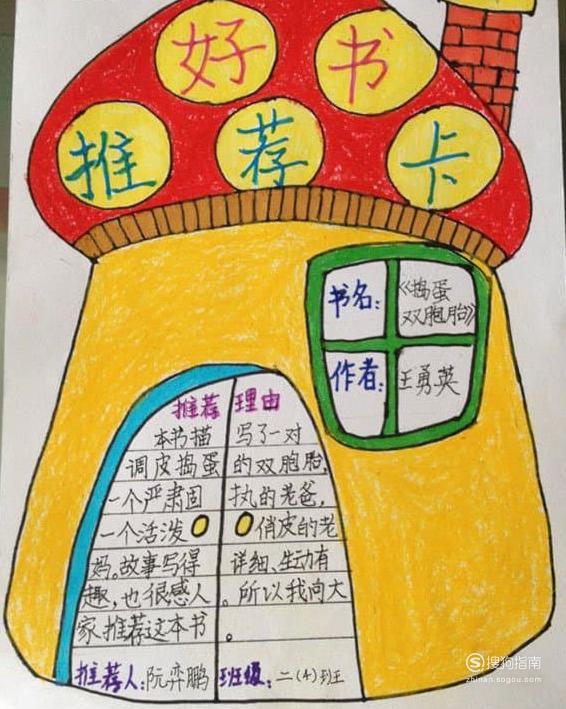 好书
推荐卡
书名：《捣蛋
双胞胎》
作者：王勇英
推荐理由
本书描写了一对
调皮捣蛋的双胞胎，
一个严肃固执的老爸，
一个活泼俏皮的老
妈。故事写得详细、生动有
趣，也很感人。所以我向大
家推荐这本书。
推荐人：阮弈鹏 班级：二（4）班
搜狗指南
zhinan.sogou.com